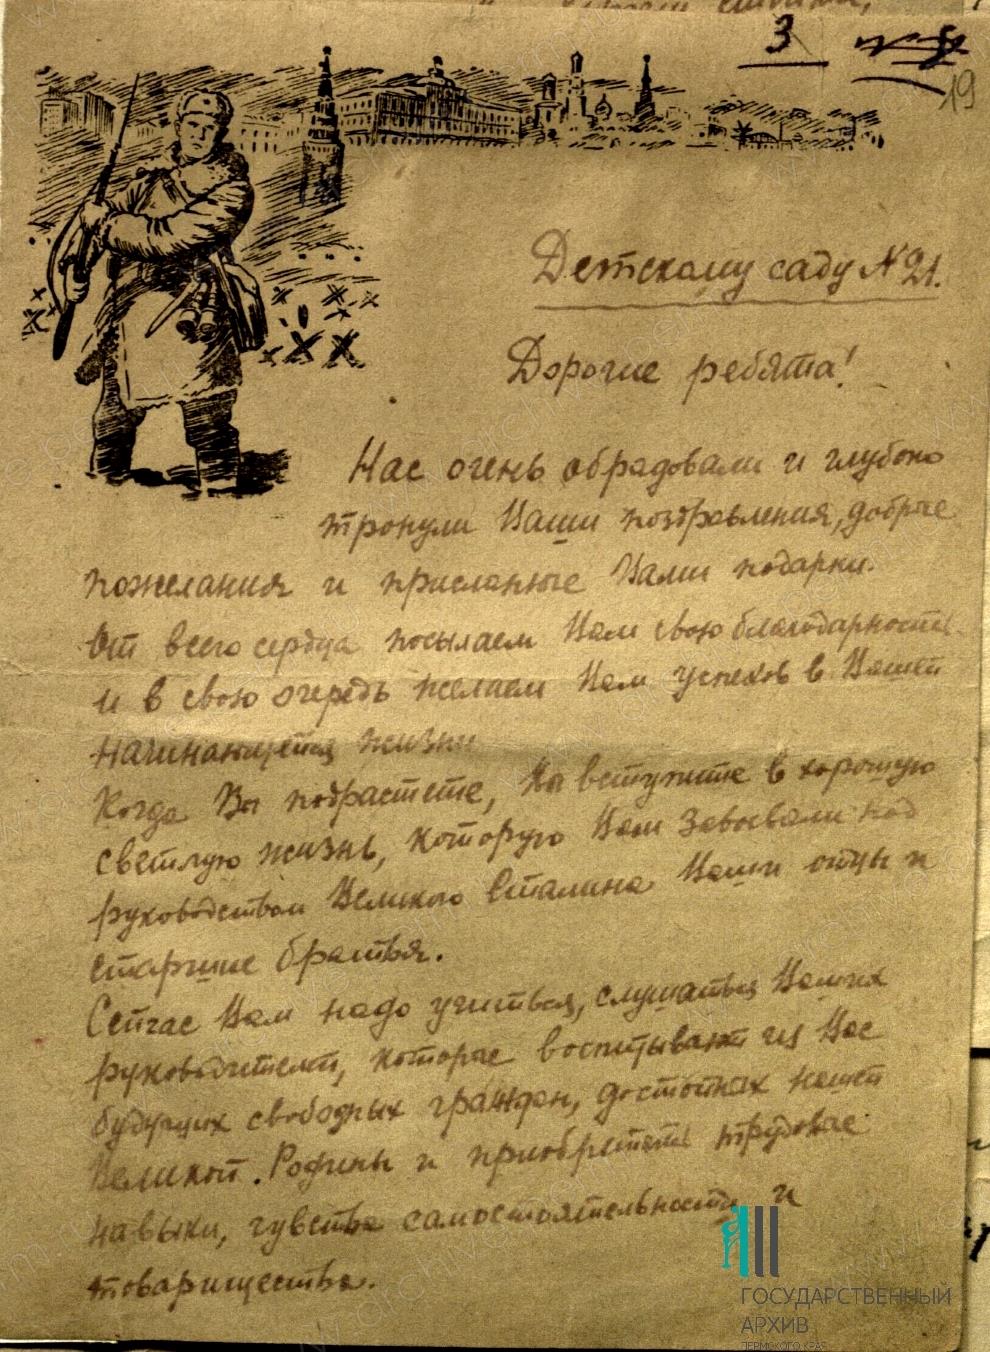 3
19
Детскому саду № 21.
Дорогие ребята!
Нас очень обрадовали и глубоко
тронули Ваши поздравления, добрые
пожелания и присланные Вами подарки.
От всего сердца посылаем Вам свою благодарность
и в свою очередь желаем Вам успехов в Вашей
начинающейся жизни
Когда Вы подрастете, Вы вступите в хорошую
светлую жизнь, которую Вам завоевали под
руководством Великого Сталина Ваши отцы и
старшие братья.
Сейчас Вам надо учиться, слушаться Ваших
руководителей, которые воспитывают из Вас
будущих свободных граждан, достойных нашей
Великой Родины и приобретать трудовые
навыки, чувства самостоятельности и
товарищества.
ГОСУДАРСТВЕННЫЙ
АРХИВ
ПЕРМСКОГО КРАЯ